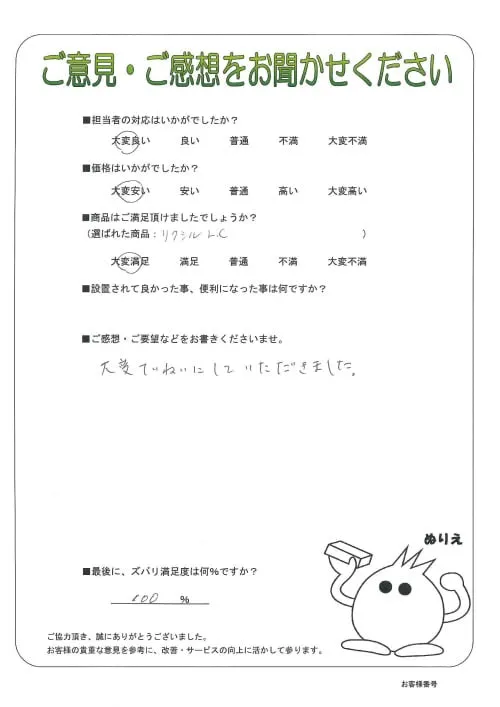 ご意見・ご感想をお聞かせください
■担当者の対応はいかがでしたか？
大変良い 良い 普通 不満 大変不満
■価格はいかがでしたか？
大変安い 安い 普通 高い 大変高い
■商品はご満足頂けましたでしょうか？
（選ばれた商品：リクシル L.C ）
大変満足 満足 普通 不満 大変不満
■設置されて良かった事、便利になった事は何ですか？
■ご感想・ご要望などをお書きくださいませ。
大変ていねいにしていただきました。
ぬりえ
■最後に、ズバリ満足度は何%ですか？
100 %
ご協力頂き、誠にありがとうございました。
お客様の貴重な意見を参考に、改善・サービスの向上に活かして参ります。
お客様番号